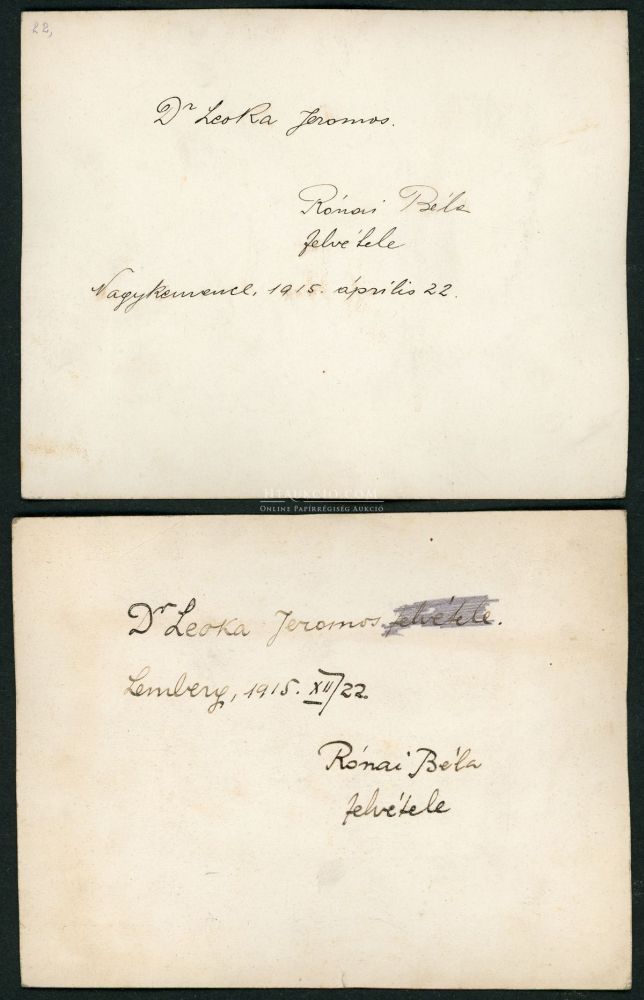 22,
Dr Leoka Jeromos.
Rónai Béla
felvétele
Nagykemencl, 1915. április 22.
HUNGARICO.COM
ONLINE PAPÍRRÉGISÉG AUKCIÓ
Dr Leoka Jeromos felvétele.
Lemberg, 1915. XII/22.
Rónai Béla
felvétele